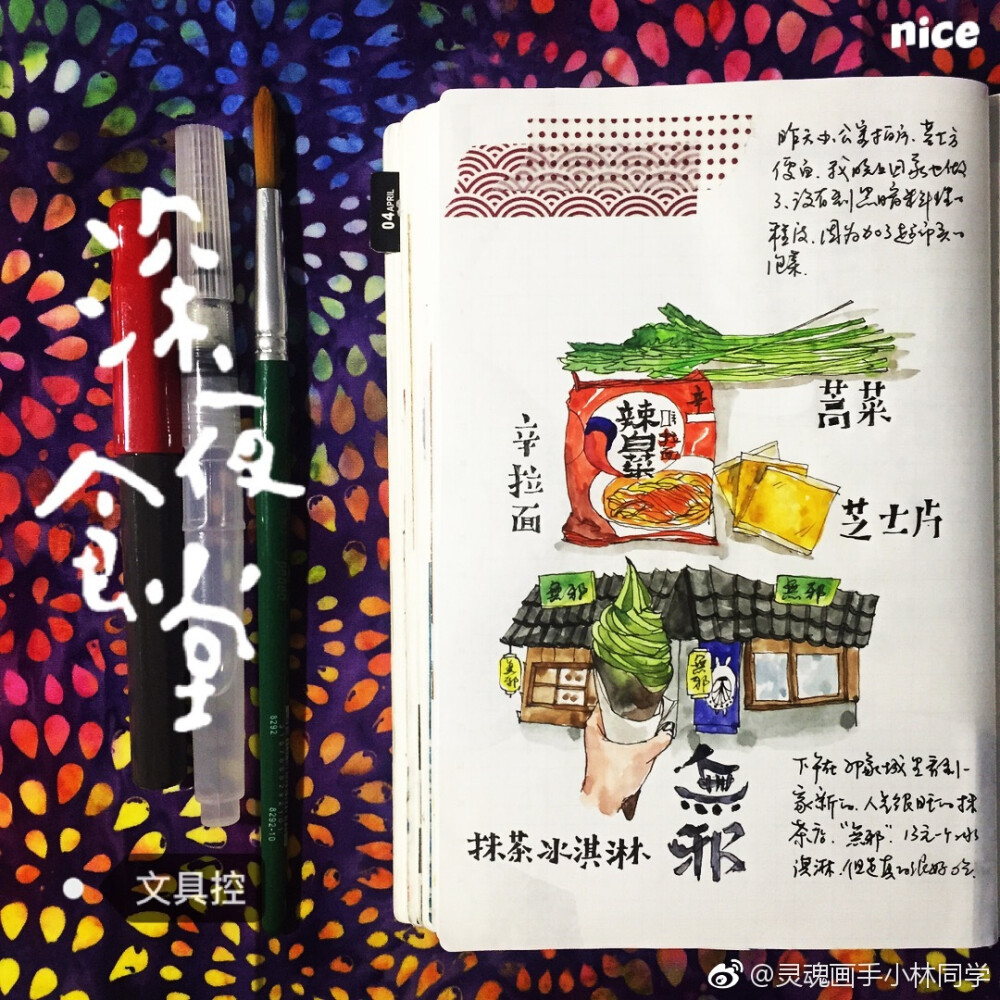 nice
深夜
食堂
文具控
8292
8292-10
04 APRIL
昨天办公室拍的芝士方
便面，我晚上回家也做
了，没有到黑暗料理的
程度，因为加了超市买的
泡菜.
蒿菜
辛
辣白菜
拉面
辛拉面
芝士片
無邪
無邪
無邪
無邪
抹茶冰淇淋
無邪
下午在印象城里看到一
家新的，人气很旺的抹
茶店，"無邪"，13元一个冰
淇淋，但是真的很好吃.
@灵魂画手小林同学